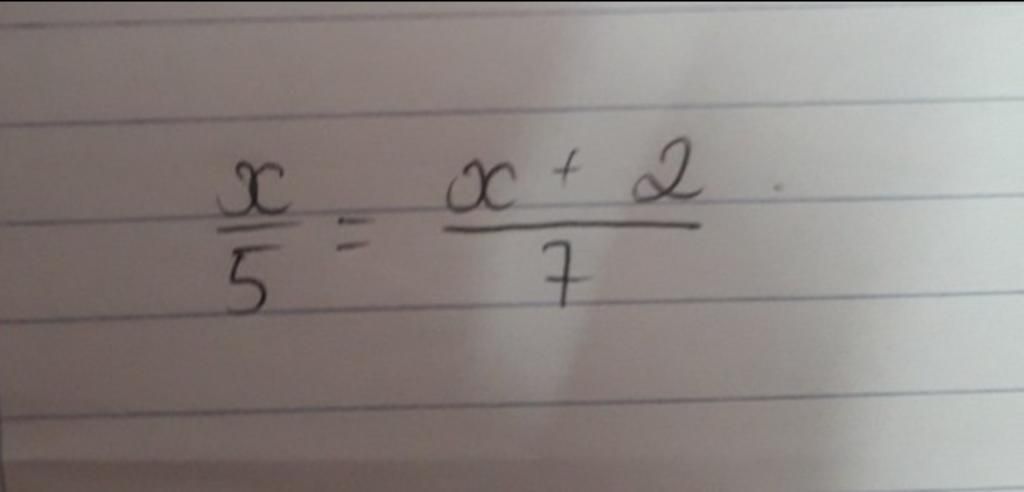 x/5 = (x + 2)/7